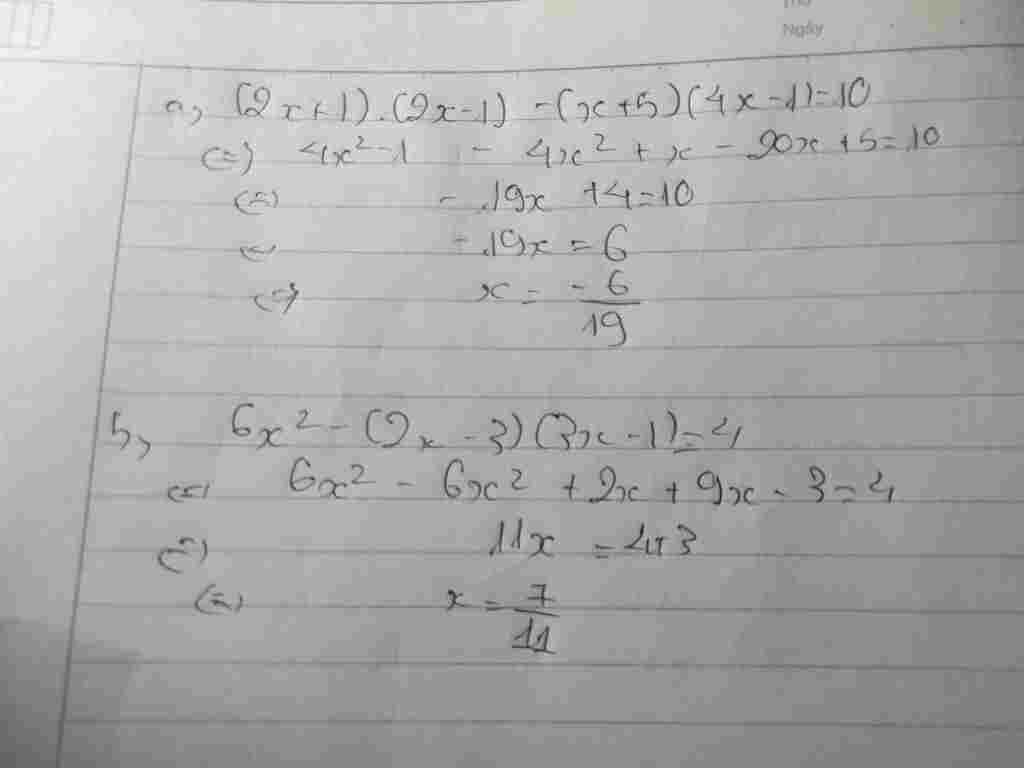 Ngày
a, (2x+1).(2x-1) -(x+5)(4x-1)=10
(=) 4x²-1 - 4x² + x - 20x + 5 = 10
(=) - 19x + 4 = 10
(=) - 19x = 6
(=) x = -6/19
b, 6x² - (2x - 3)(3x - 1) = 4
(=) 6x² - 6x² + 2x + 9x - 3 = 4
(=) 11x = 4+3
(=) x = 7/11